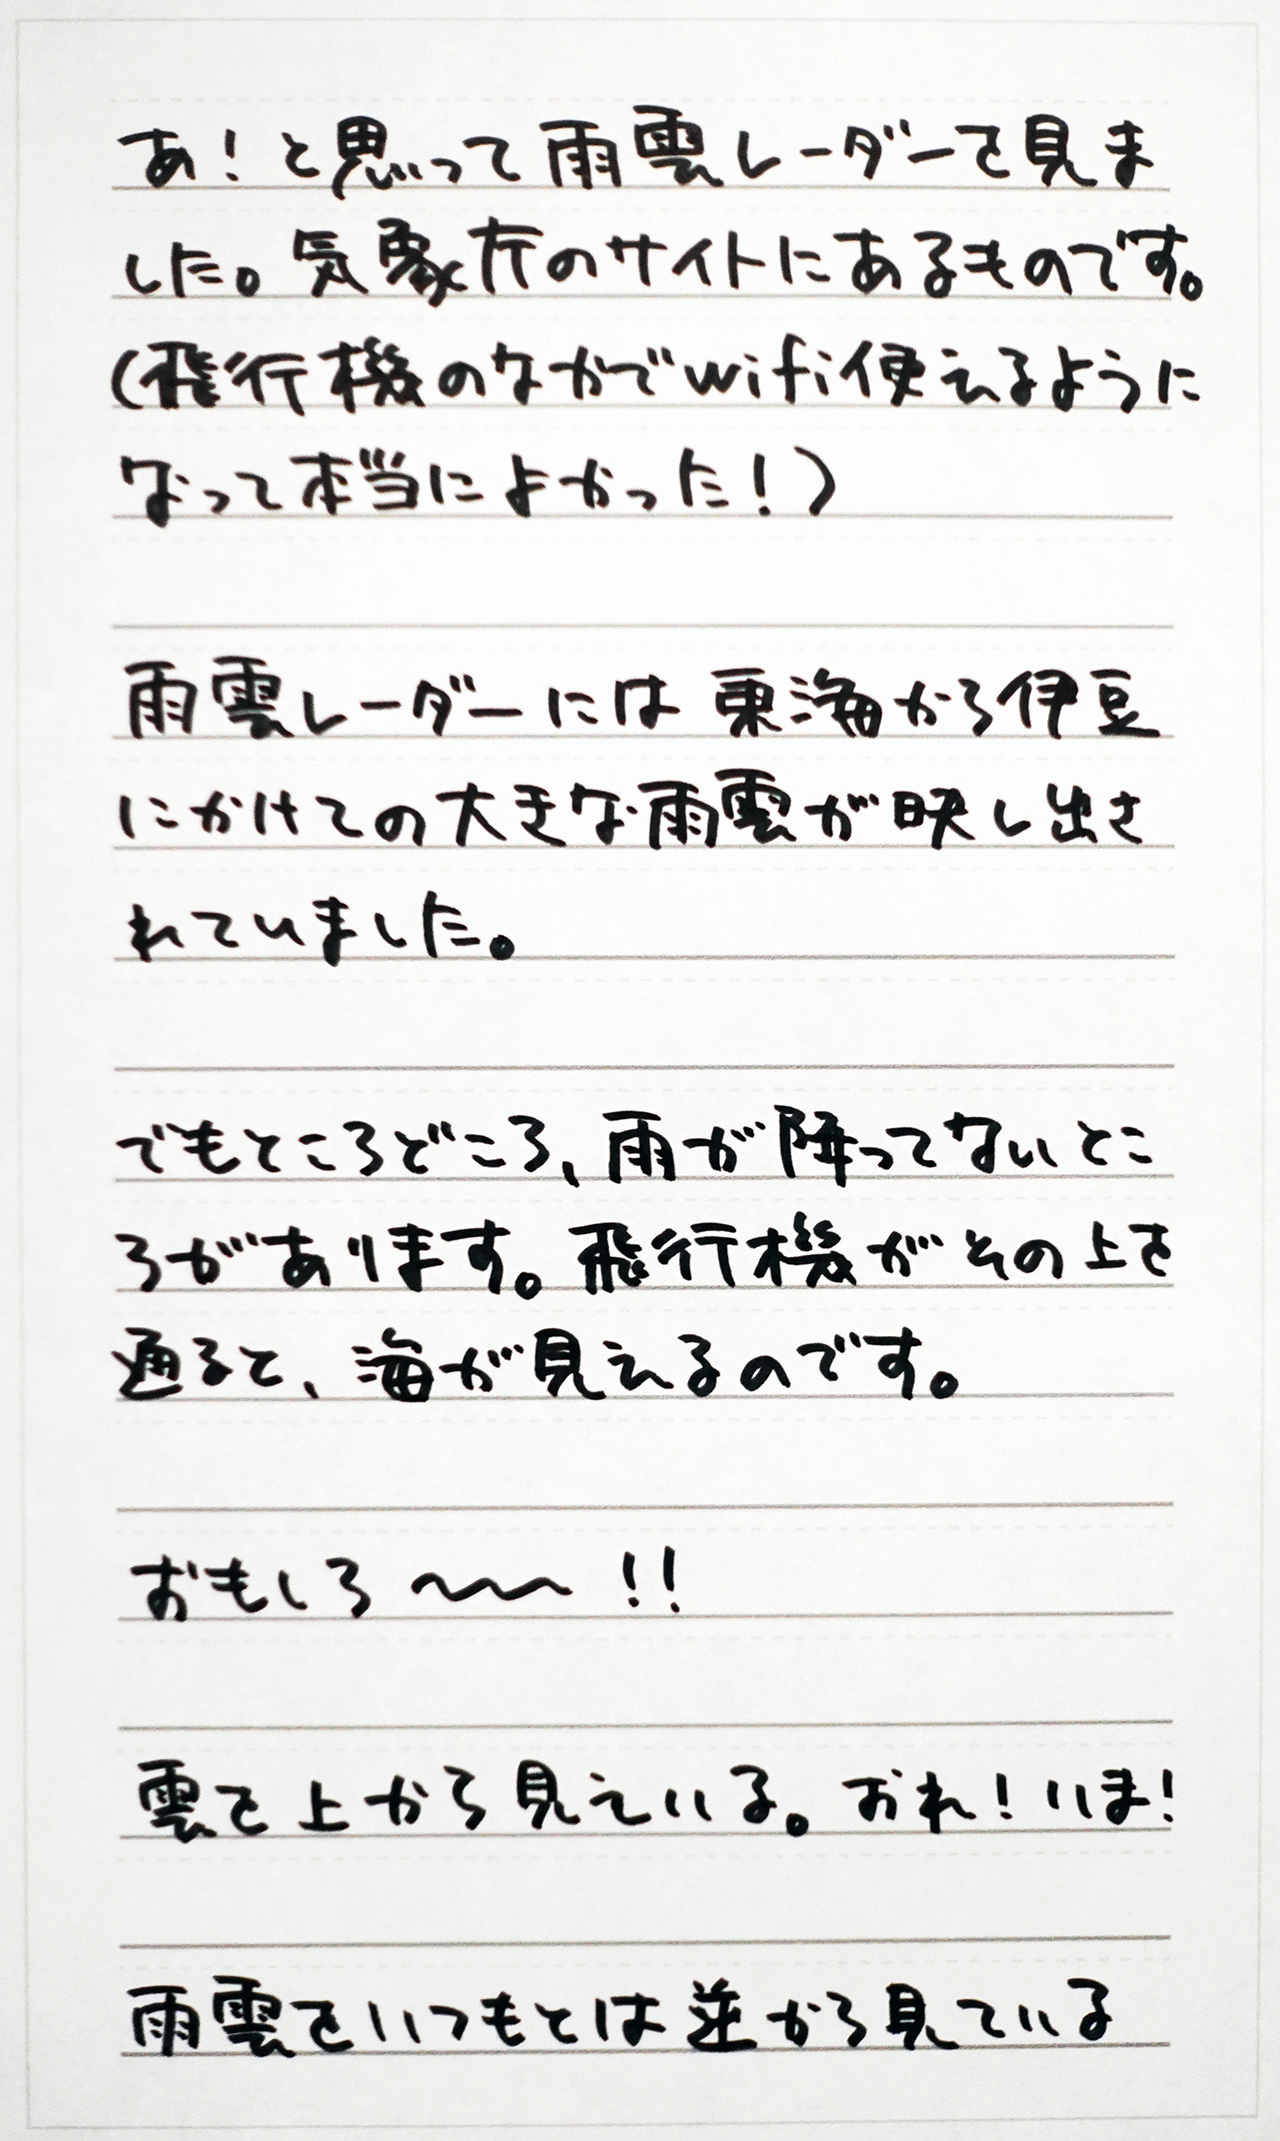 あ！と思って雨雲レーダーを見ま
した。気象庁のサイトにあるものです。
(飛行機のなかでwifi使えるように
なって本当によかった！)
雨雲レーダーには東海から伊豆
にかけての大きな雨雲が映し出さ
れていました。
でもところどころ、雨が降ってないとこ
ろがあります。飛行機がその上を
通ると、海が見えるのです。
おもしろ〜〜！！
雲を上から見えいる。おれ！いま！
雨雲をいつもとは逆から見ている